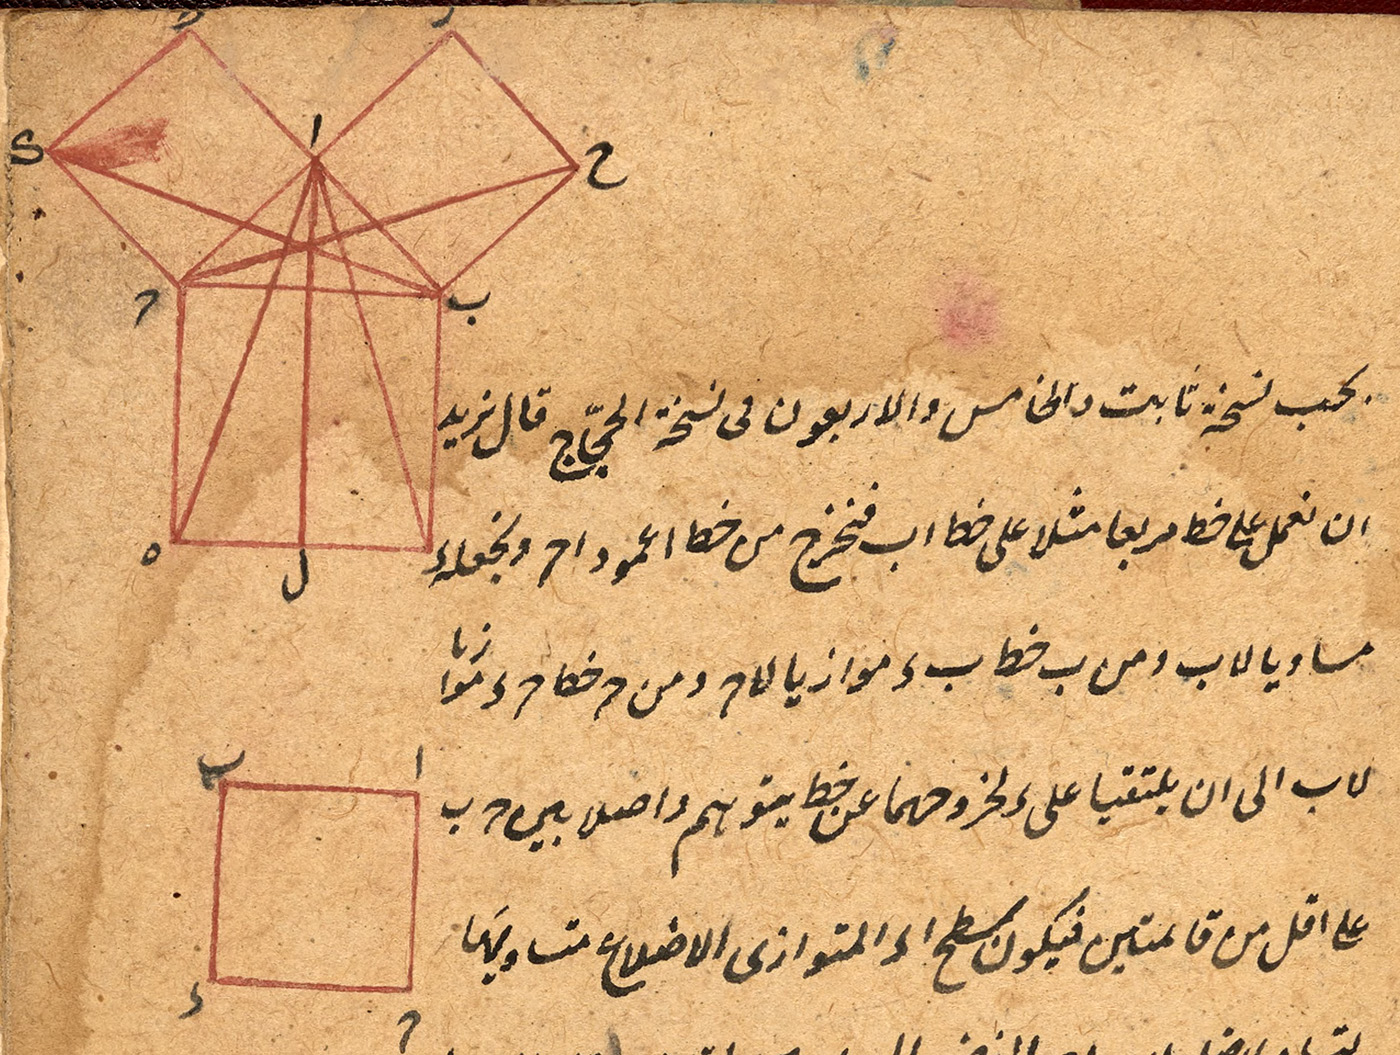 بحسب نسخة ثابت والخامس والاربعون فى نسخة الحجّاج قال نريد
ان نعمل على خط مربعا مثلا على خط اب فنخرج من خط ا عمود اح ونجعله
مساويا لاب ومن ب خط ب ء موازيا لاح ومن ح خط ح ء موازيا
لاب الى ان يلتقيا على ء لخروجهما عن خط يتوهم واصلا بين ح ب
على اقل من قائمتين فيكون سطح اء المتوازى الاضلاع متساويها
ا
ح
ب
ح
ه
ل
ا
ب
ء
ح